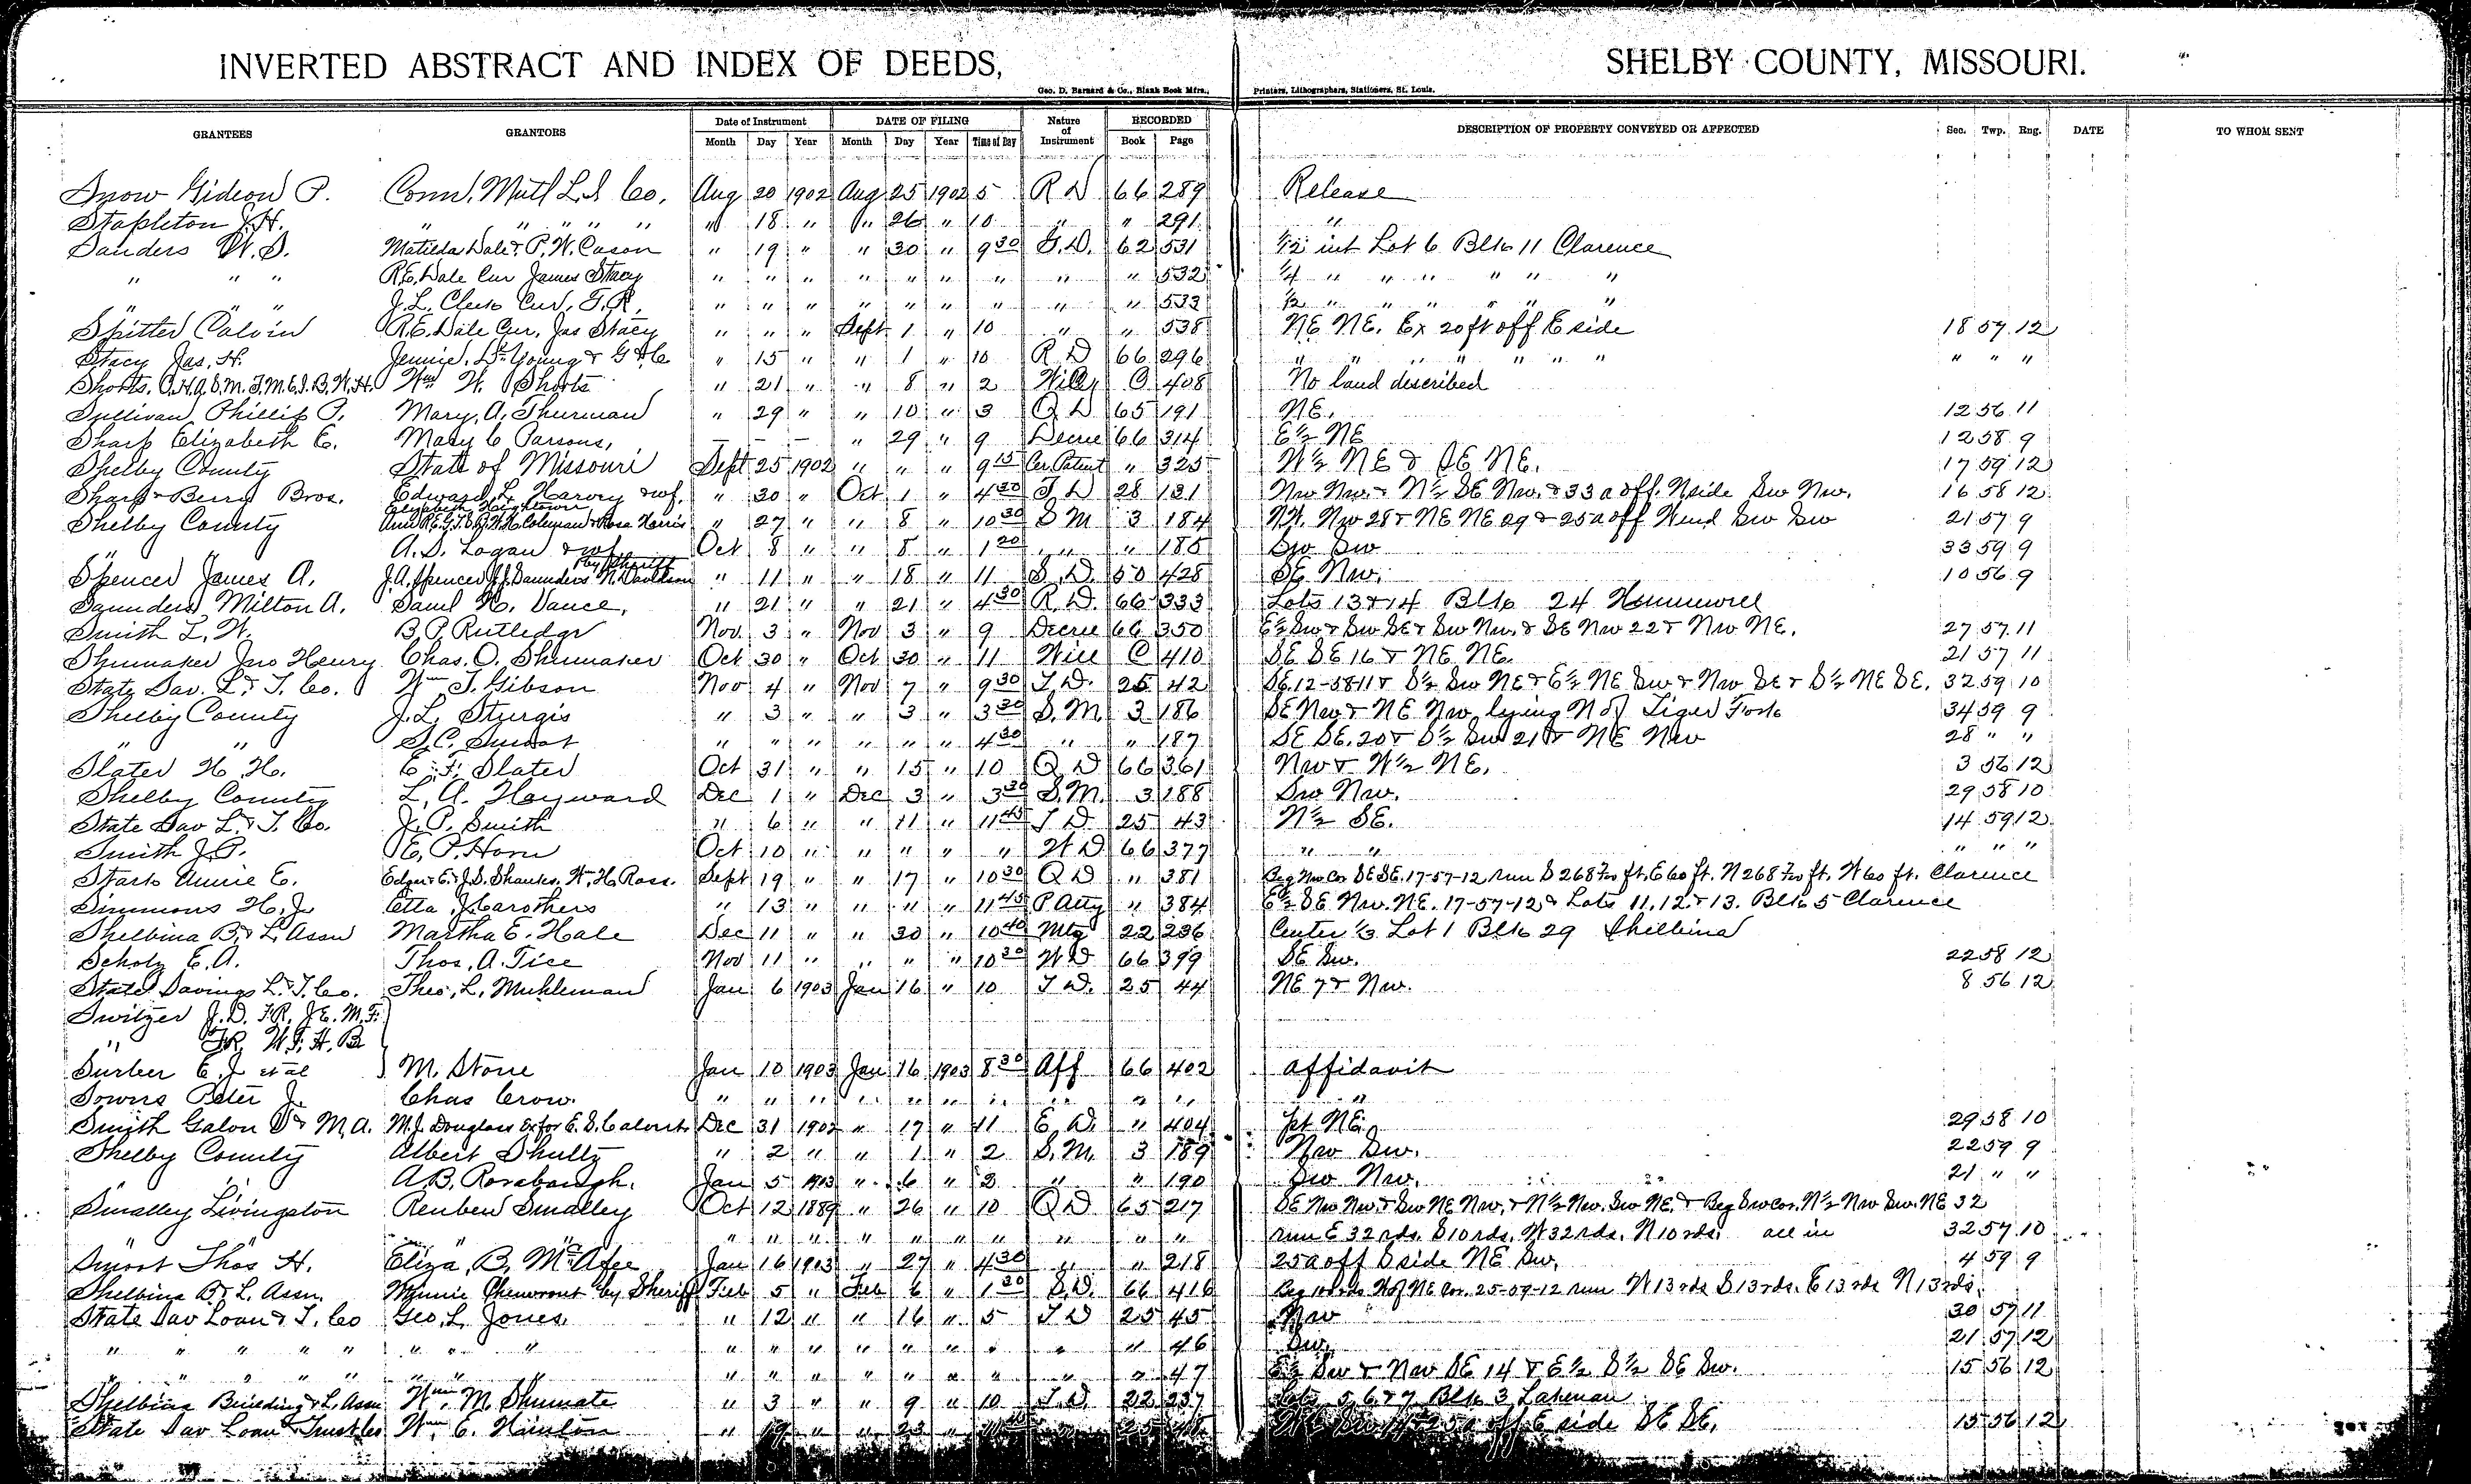 INVERTED ABSTRACT AND INDEX OF DEEDS, SHELBY COUNTY, MISSOURI.
Geo. D. Barnard & Co., Blank Book Mfrs., Printers, Lithographers, Stationers, St. Louis.
GRANTEES GRANTORS Date of Instrument DATE OF FILING Nature of Instrument RECORDED DESCRIPTION OF PROPERTY CONVEYED OR AFFECTED Sec. Twp. Rng. DATE TO WHOM SENT
Month Day Year Month Day Year Time of Day Book Page
Snow Gideon P. Conn. Mutl L.I Co. Aug 20 1902 Aug 25 1902 5 R D 66 289 Release
Stapleton J.H. " " " " " " 18 " " 26 " 10 " " 291 "
Sanders W.S. Matilda Dale & P.W. Cason " 19 " " 30 " 9 30 G.D. 62 531 1/12 int Lot 6 Blk 11 Clarence
" " " R.E. Dale Cur James Stacy " " " " " " " " " 532 1/4 " " " " " "
" " " J.L. Cleek Cur. T.R. " " " " " " " " " 533 1/2 " " " " " "
Spitter Calvin R.E. Dale Cur. Jas Stacy " " " Sept 1 " 10 " " 538 NE NE. Ex 20 ft off E side 18 57 12
Stacy Jas. H. Jennie. De Young & G H C " 15 " " 1 " 10 R D 66 296 " " " " " " " " " "
Shorts. C.H.A.S.M. F.M.E.I.B.W.H. Wm W. Shorts " 21 " " 8 " 2 Will C 408 No land described
Sullivan Phillip P. Mary A. Thurman " 29 " " 10 " 3 Q D 65 191 NE. 12 56 11
Sharp Elizabeth E. Mary C Parsons, — — — " 29 " 9 Decree 66 314 E½ NE 12 58 9
Shelby County State of Missouri Sept 25 1902 " " " 9 15 Cer. Patent " 325 W½ NE & SE NE. 17 59 12
Sharp & Berry Bros. Edward L. Harvey & wf. " 30 " Oct 1 " 4 30 T D 28 131 Nw Nw. & N½ SE Nw. & 33 a off. N side Sw Nw. 16 58 12
Shelby County Elizabeth Hightower " 27 " " 8 " 10 30 S M 3 184 NW. Nw 28 & NE NE 29 & 25 a off W end Sw Sw 21 57 9
" " A.D. Logan & wf Oct 8 " " 8 " 1 20 " " 185 Sw Sw 33 59 9
Spencer James A. J.A. Spencer J.J. Saunders N. Davidson by Sheriff " 11 " " 18 " 11 S. D. 50 428 SE Nw. 10 56 9
Saunders Milton A. Saml H. Vance. " 21 " " 21 " 4 30 R. D. 66 333 Lots 13 & 14 Blk 24 Hunnewell
Smith L. W. B.P. Rutledge Nov. 3 " Nov 3 " 9 Decree 66 350 E½ Sw & Sw SE & Sw Nw. & SE Nw 22 & Nw NE. 27 57 11
Shumaker Jno Henry Chas. O. Shumaker Oct 30 " Oct 30 " 11 Will C 410 SE SE 16 & NE NE. 21 57 11
State Sav. L. & T. Co. Wm T. Gibson Nov 4 " Nov 7 " 9 30 T. D. 25 42 SE. 12-58-11 & S½ Sw NE & E½ NE Sw & Nw SE & S½ NE SE. 32 59 10
Shelby County J.L. Sturgis " 3 " " 3 " 3 30 S. M. 3 186 SE Nw & NE Nw lying N of Tiger Fork 34 59 9
" " S.C. Smoot " " " " " " 4 30 " " 187 SE SE. 20 & S½ Sw 21 & NE Nw 28 " "
Slater H. H. E. F. Slater Oct 31 " " 15 " 10 Q D 66 361 Nw & W½ NE. 3 56 12
Shelby County L. A. Hayward Dec 1 " Dec 3 " 3 30 S. M. 3 188 Sw Nw. 29 58 10
State Sav L. & T. Co. J. P. Smith " 6 " " 11 " 11 45 T D 25 43 N½ SE. 14 59 12
Smith J.P. E. P. Horn Oct 10 " " " " " W D 66 377 " " " " "
Stark Annie E. Edgar E. & J.S. Shanks. Wm H. Ross. Sept 19 " " 17 " 10 30 Q D " 381 Beg Nw Cor SE SE. 17-57-12 run S 268 ft. E 60 ft. N 268 ft. W 60 ft. Clarence
Simmons H. J. Etta J. Carothers " 13 " " " " 11 45 P Atty " 384 E½ SE Nw. NE. 17-57-12 & Lots 11, 12 & 13. Blk 5 Clarence
Shelbina B. & L. Assn Martha E. Hale Dec 11 " " 30 " 10 40 Mtg 22 236 Center 1/3 Lot 1 Blk 29 Shelbina
Scholz E. A. Thos. A. Tice Nov 11 " " " " 10 30 W D 66 399 SE Sw. 22 58 12
State Savings L. & T. Co. Theo. L. Muhleman Jan 6 1903 Jan 16 " 10 T D. 25 44 NE 7 & Nw. 8 56 12
Switzer J. D. F.R. J.E. M.F.
" F.R. W.F. H.B
Surber E. J et al M. Stone Jan 10 1903 Jan 16 1903 8 30 Aff 66 402 Affidavit
Sowers Peter J. Chas Crow. " " " " " " " " " " "
Smith Galon D & M.A. M.J. Douglass Ex for E. S. Calvert Dec 31 1902 " 17 " 11 E. D. " 404 pt NE. 29 58 10
Shelby County Albert Shultz " 2 " " 1 " 2 S. M. 3 189 Nw Sw. 22 59 9
" " A.B. Rorabaugh. Jan 5 1903 " 6 " 3 " " 190 Sw Nw. 21 " "
Smalley Livingston Reuben Smalley Oct 12 1889 " 26 " 10 Q D 65 217 SE Nw Nw. & Sw NE Nw. & N½ Nw. Sw NE. & Beg Sw cor. N½ Nw Sw. NE 32
" " " " " " " " " " " " " run E 32 rds. S 10 rds. W 32 rds. N 10 rds. all in 32 57 10
Smoot Thos H. Eliza. B. McAfee Jan 16 1903 " 27 " 4 30 " " 218 25 a off S side NE Sw. 4 59 9
Shelbina B & L. Assn. Minnie Chenowout by Sheriff Feb 5 " Feb 6 " 1 30 S. D. 66 416 Beg rds W of NE Cor. 25-57-12 run W 13 rds S 13 rds. E 13 rds N 13 rds.
State Sav Loan & T. Co Geo. L. Jones. " 12 " " 16 " 5 T D 25 45 Nw 30 57 11
" " " " " " " " " " " " " " " " " 46 Sw. 21 57 12
" " " " " " " " " " " " " " " " " 47 E½ Sw & Nw SE 14 & E½ S½ SE Sw. 15 56 12
Shelbina Building & L. Assn Wm. M. Shumate " 3 " " 9 " 10 T. D. 22 237 Lots 5, 6 & 7 Blk 3 Lakenan
State Sav Loan & Trust Co Wm. E. Hainton " 19 " " 23 " " 25 off E side SE SE. 15 56 12